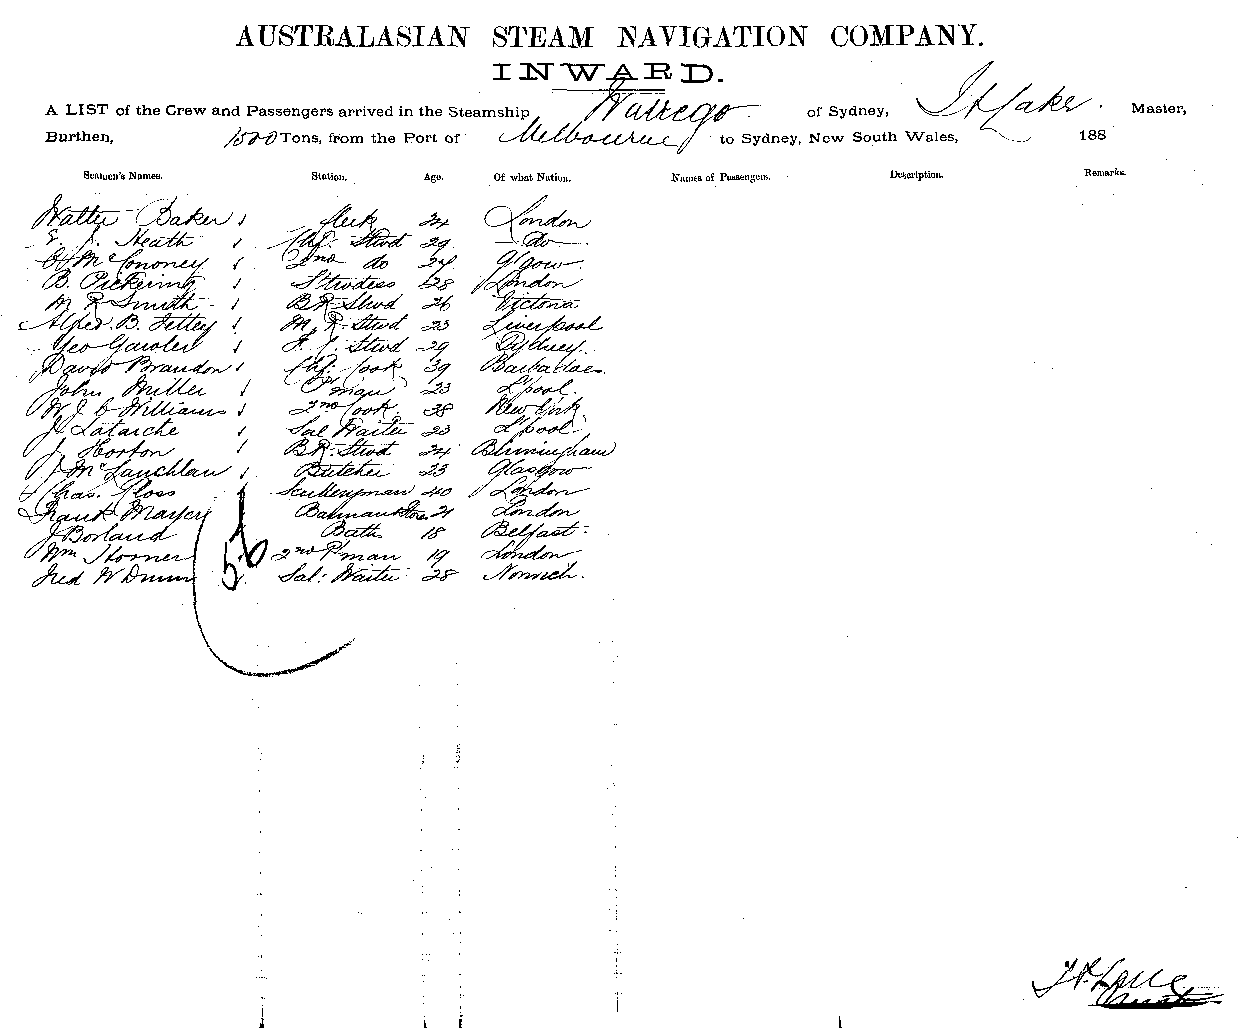 AUSTRALASIAN STEAM NAVIGATION COMPANY.
INWARD.
A LIST of the Crew and Passengers arrived in the Steamship Warrego of Sydney, Master,
Burthen, 1500 Tons, from the Port of Melbourne to Sydney, New South Wales, 188
Seamen's Names. Station. Age. Of what Nation. Names of Passengers. Description. Remarks.
Walter Baker 1 Clerk 24 London
E. J. Heath 1 Chf. Stwd 29 Do
McCononey 1 2nd do 24 Glgow
B. Pickering 1 Stwdess 28 London
M R Smith 1 BR Stwd 26 Victoria
Alfred B. 1 M. R. Stwd 23 Liverpool
Geo Gawler 1 Stwd 29 Sydney
David Brandon 1 Chf. Cook 39 Barbadoes
John Miller 1 P'man 23 L'pool
W. J. Williams 1 2nd Cook 38 New York
J Latarche 1 Sal Waiter 23 L'pool
J Horton 1 BR. Stwd 24 Birmingham
J McLauchlan 1 Butcher 23 Glasgow
Chas. Gloss 1 Sculleryman 40 London
Frank Mayers Barman 21 London
J Borland Baths 18 Belfast
Wm Horner 2nd P'man 19 London
Fred W Dunn Sal: Waiter 28 Norwich.
56